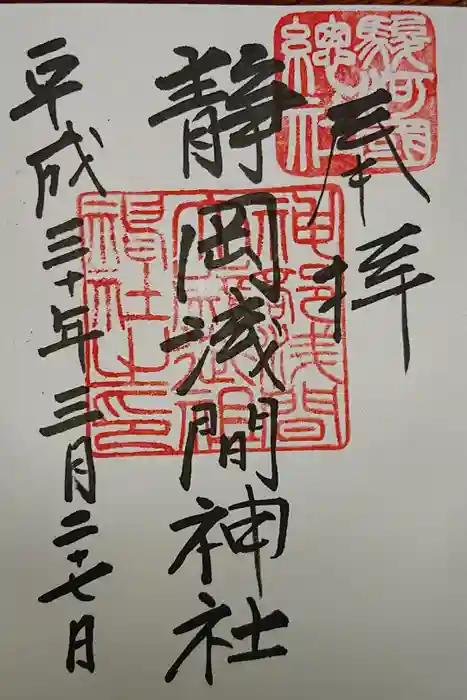 奉拝
駿河國
總社
静岡浅間神社
神部浅間
平成三十年三月二十七日